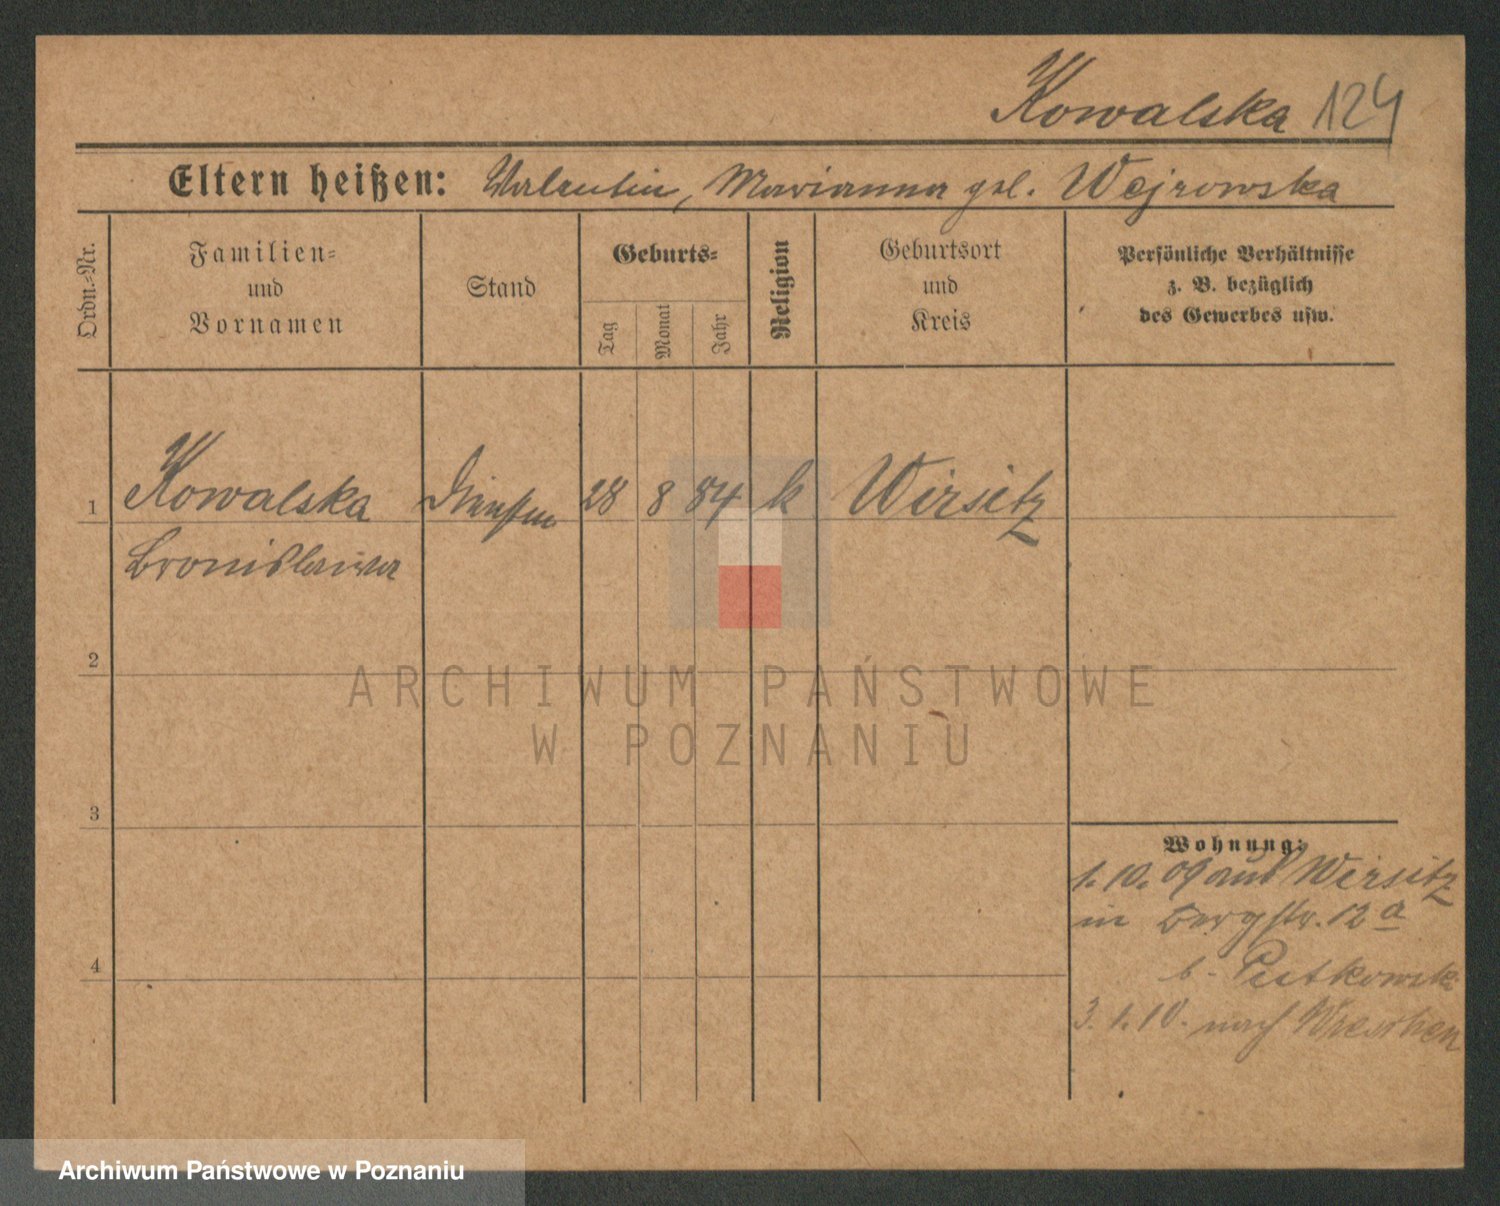 Kowalska 124
Eltern heißen: Valentin, Marianna geb. Wejrowska
Ordn.-Nr.
Familien-
und
Vornamen
Stand
Geburts-
Tag
Monat
Jahr
Religion
Geburtsort
und
Kreis
Persönliche Verhältnisse
z. B. bezüglich
des Gewerbes usw.
1 Kowalska 28 8 84 k Wirsitz
Bronislawa
2
3
4
Wohnung:
1.10.09 aus Wirsitz
in Bergstr. 12 a
b. Putkowski
3.1.10. nach Wreschen
ARCHIWUM PAŃSTWOWE
W POZNANIU
Archiwum Państwowe w Poznaniu